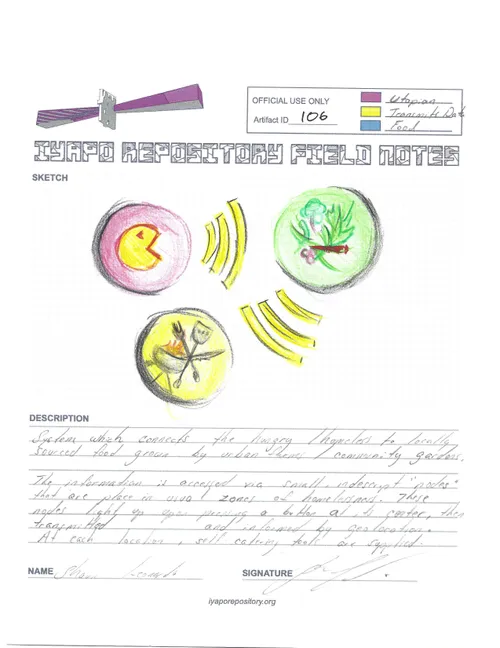 OFFICIAL USE ONLY
Artifact ID 106
Utopian
Transmits Data
Food
IYAPO REPOSITORY FIELD NOTES
SKETCH
DESCRIPTION
System which connects the hungry / homeless to locally
sourced food grown by urban farms / community gardens.
The information is accessed via small, "nodes"
that are place in zones of homelessness. These
nodes light up upon pressing a button at its center, then
transmitted and informed by geolocation.
At each location, self catering tools are supplied
NAME
SIGNATURE
iyaporepository.org